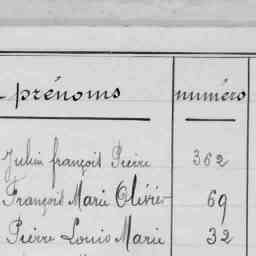 prénoms numéro
Julien françois Pierre 362
François Marie Olivier 69
Pierre Louis Marie 32